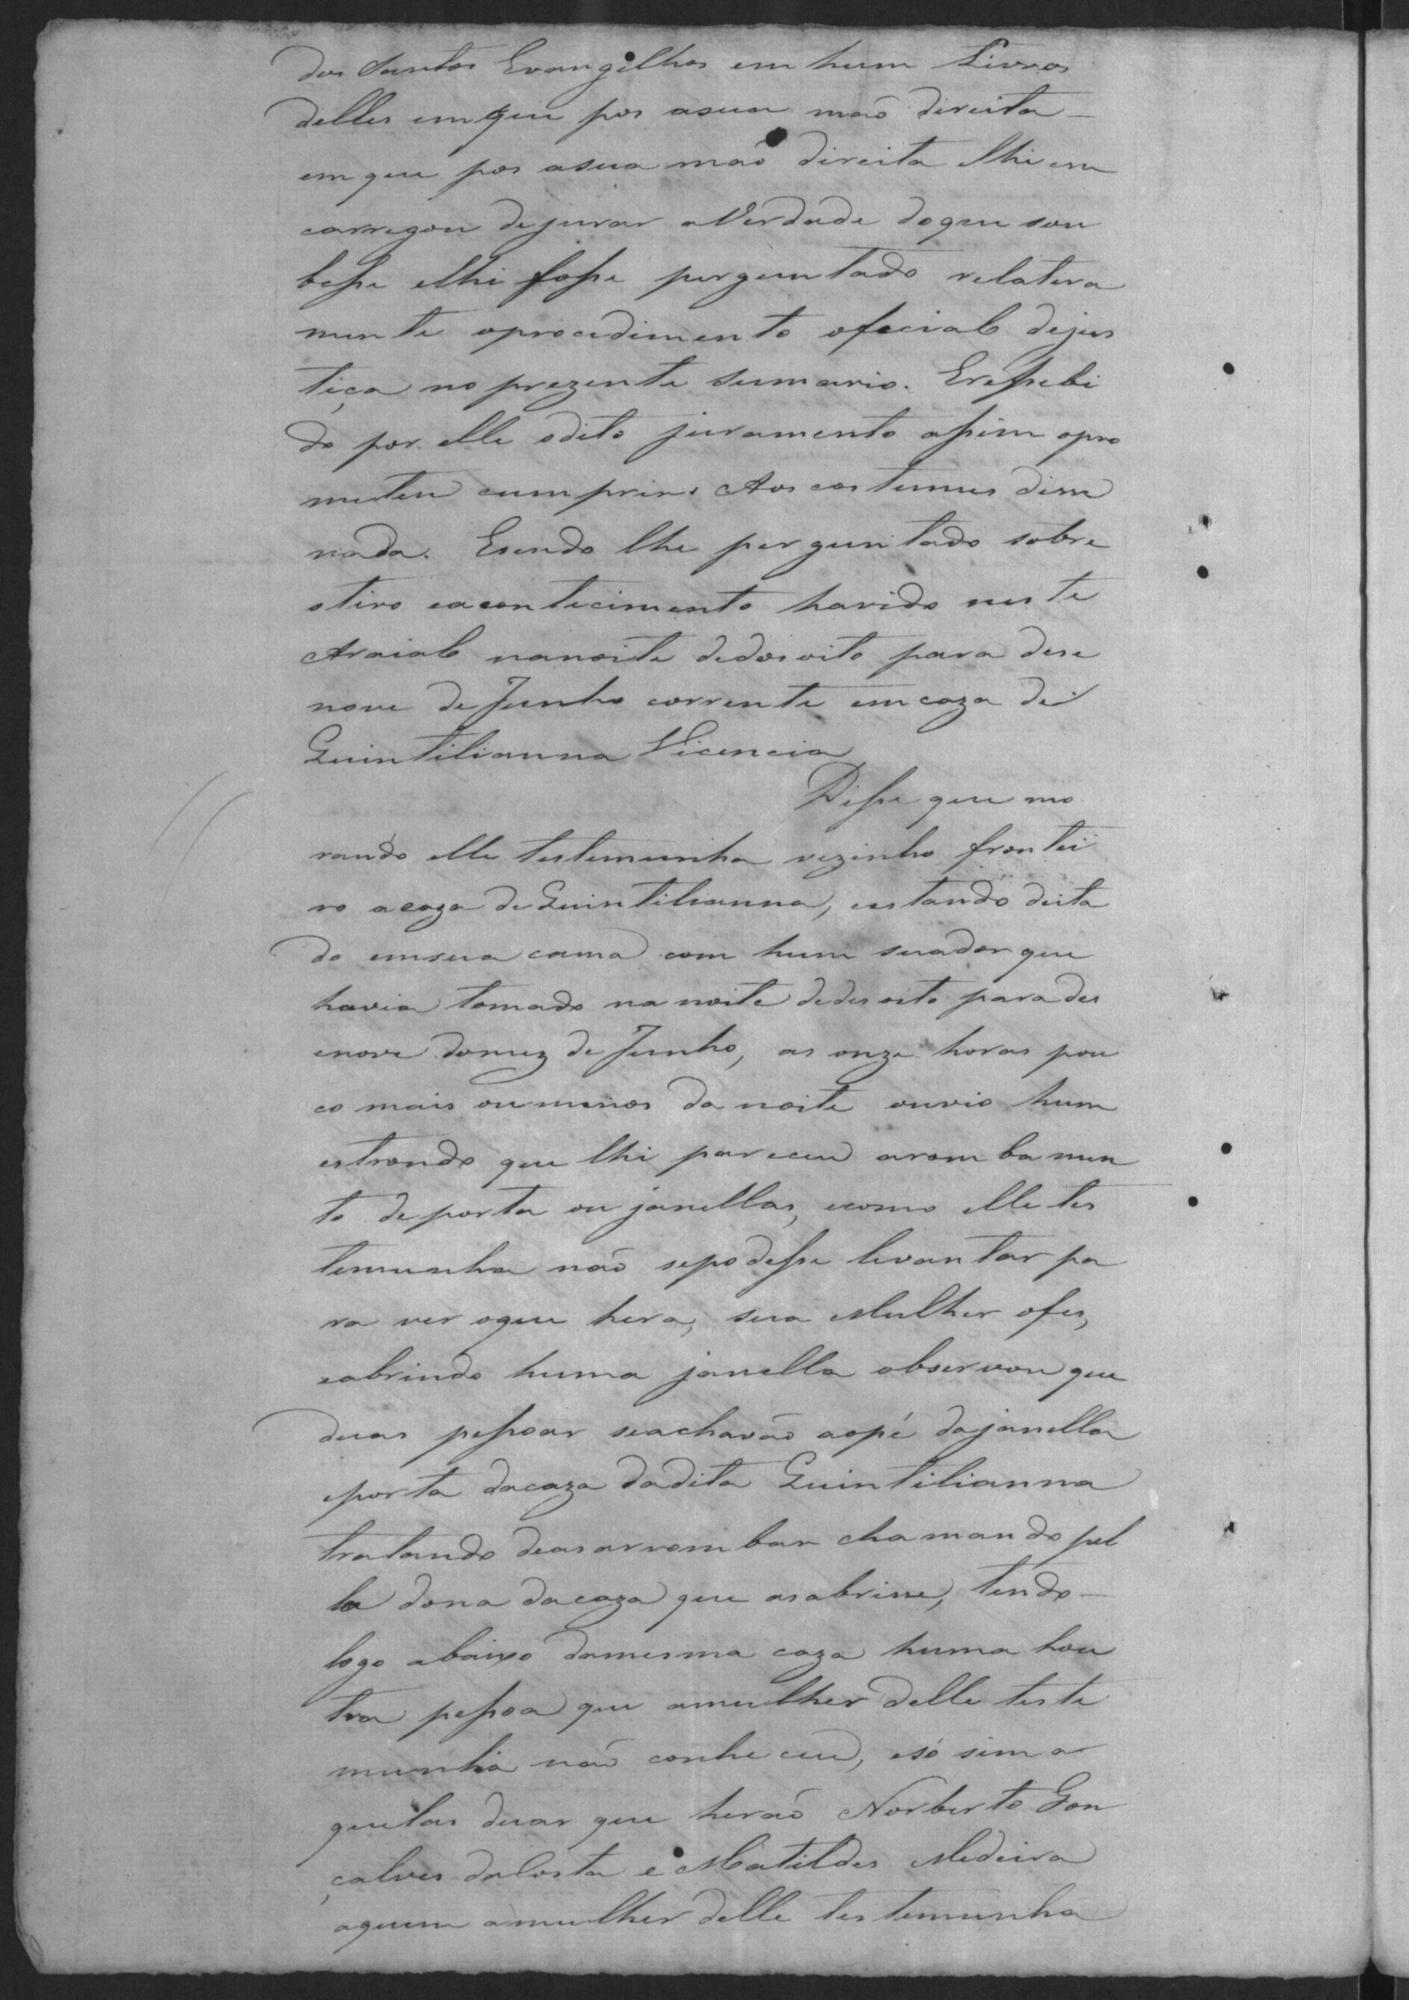 dos Santos Evangelhos em hum Livros
delles emque pos asua mão direita –
em que pos asua mão direita elhi en
carregou dejurar aVerdade doque sou
besse elhi fosse perguntado relativa
mente oprocedimento oficial dejus
tiça no prezente sumario. Eressebi
do por elle odito juramento assim opro
meteu cumprir. Aos costumes disse
nada. Esendo lhe perguntado sobre
otiro eacontecimento havido neste
Araial nanoite dedesoito para dese
nove deJunho corrente emcaza de
Quintilianna Vicencia
Disse que mo
rando elle testemunha vezinho frontei
ro acaza deQuintilianna, estando deita
do emsua cama com hum suador que
havia tomado na noite dedesoito parades
enove domez deJunho, as onze horas pou
co mais oumenos da noite ouvio hum
estrondo que lhi pareceu aromba men
to deporta ou janellas, ecomo elle tes
temunha não sepodesse levantar pa
ra ver oque hera, sua Mulher ofes,
eabrindo huma janella observou que
duas pessoas seachavão aopé dajanella
eporta dacaza dadita Quintilianna
tratando deasarrombar chamando pel
la dona dacaza que asabrisse, tendo –
logo abaixo damesma caza huma hou
tra pessoa que amulher delle teste
munha não conheceu, esó sim a
quelas duas que herão Norberto Gon
çalves daCosta e Matildes Medeira
aquem amulher delle testemunha